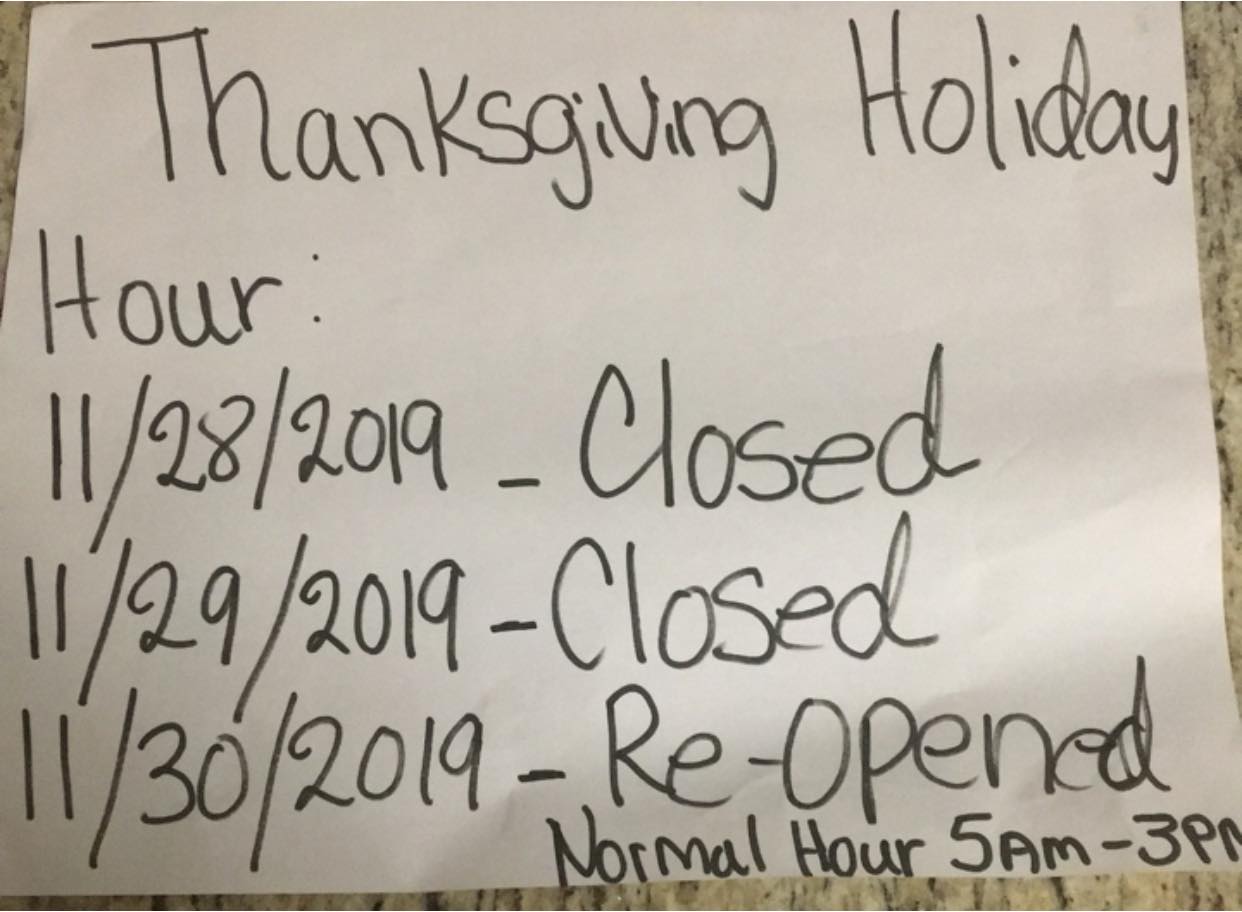 Thanksgiving Holiday
Hour:
11/28/2019 - Closed
11/29/2019 - Closed
11/30/2019 - Re-Opened
Normal Hour 5AM - 3PM